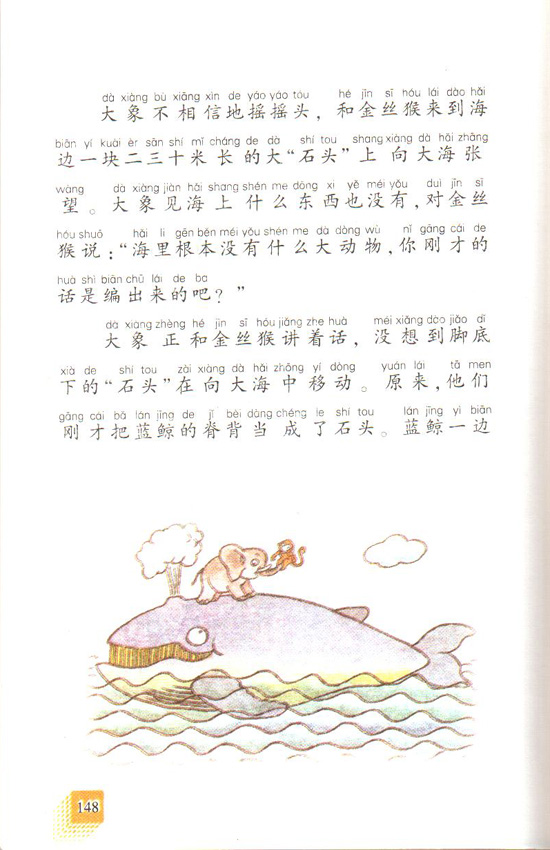 dà xiàng bù xiāng xìn de yáo yáo tóu hé jīn sī hóu lái dào hǎi
大象不相信地摇摇头，和金丝猴来到海
biān yí kuài èr sān shí mǐ cháng de dà shí tou shang xiàng dà hǎi zhāng
边一块二三十米长的大“石头”上向大海张
wàng dà xiàng jiàn hǎi shang shén me dōng xi yě méi yǒu duì jīn sī
望。大象见海上什么东西也没有，对金丝
hóu shuō hǎi li gēn běn méi yǒu shén me dà dòng wù nǐ gāng cái de
猴说：“海里根本没有什么大动物，你刚才的
huà shì biān chū lái de ba
话是编出来的吧？”
dà xiàng zhèng hé jīn sī hóu jiǎng zhe huà méi xiǎng dào jiǎo dǐ
大象正和金丝猴讲着话，没想到脚底
xià de shí tou zài xiàng dà hǎi zhōng yí dòng yuán lái tā men
下的“石头”在向大海中移动。原来，他们
gāng cái bǎ lán jīng de jǐ bèi dàng chéng le shí tou lán jīng yì biān
刚才把蓝鲸的脊背当成了石头。蓝鲸一边
148